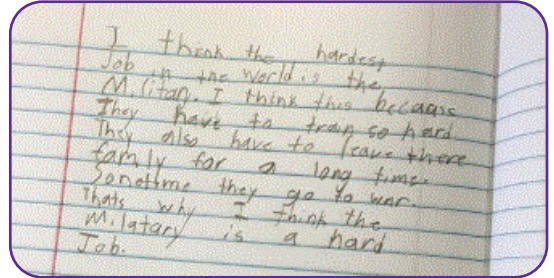 I think the hardest
Job in the world is the
Militan. I think this because
They have to tran so hard
They also have to leave there
family for a long time.
Sonetime they go to war.
Thats why I think the
Milatary is a hard
Job.